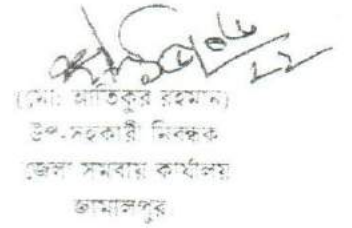 (মো: আতিকুর রহমান)
উপ-সহকারী নিবন্ধক
জেলা সমবায় কার্যালয়
জামালপুর